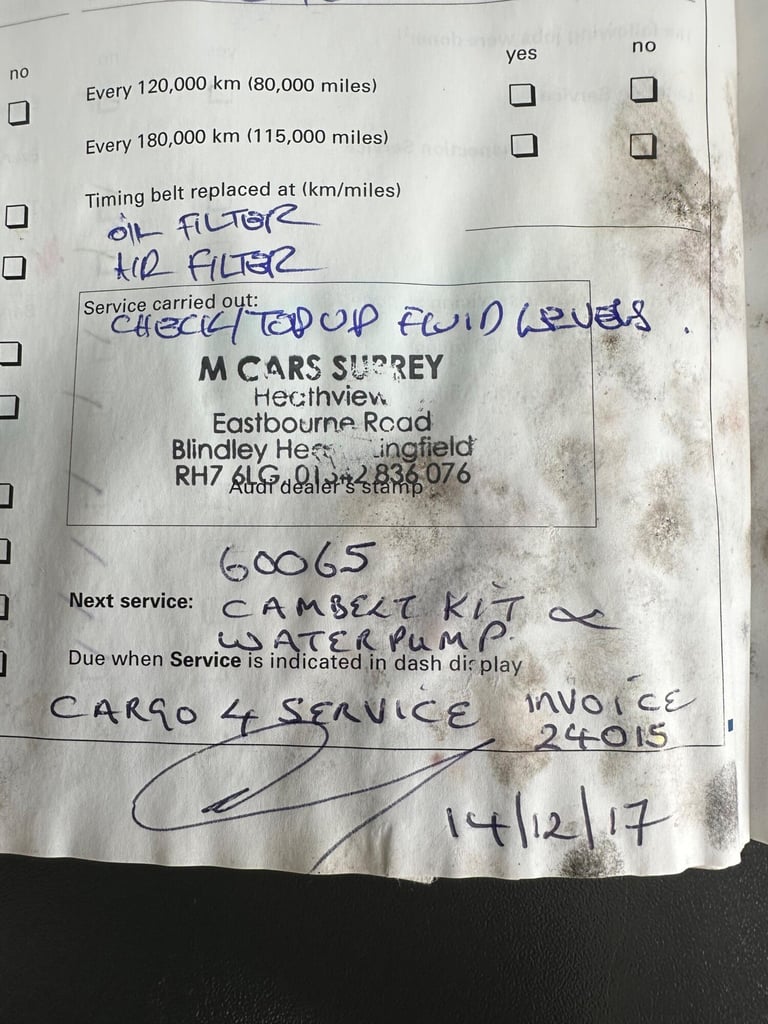 yes no
no
Every 120,000 km (80,000 miles)
Every 180,000 km (115,000 miles)
Timing belt replaced at (km/miles)
OIL FILTER
AIR FILTER
Service carried out:
CHECK/TOP UP FLUID LEVELS.
M CARS SURREY
Heathview
Eastbourne Road
Blindley Hea ingfield
RH7 6LG. 01342 836 076
Audi dealer's stamp
60065
Next service: CAMBELT KIT &
WATER PUMP.
Due when Service is indicated in dash display
CARGO 4 SERVICE INVOICE
24015
14/12/17